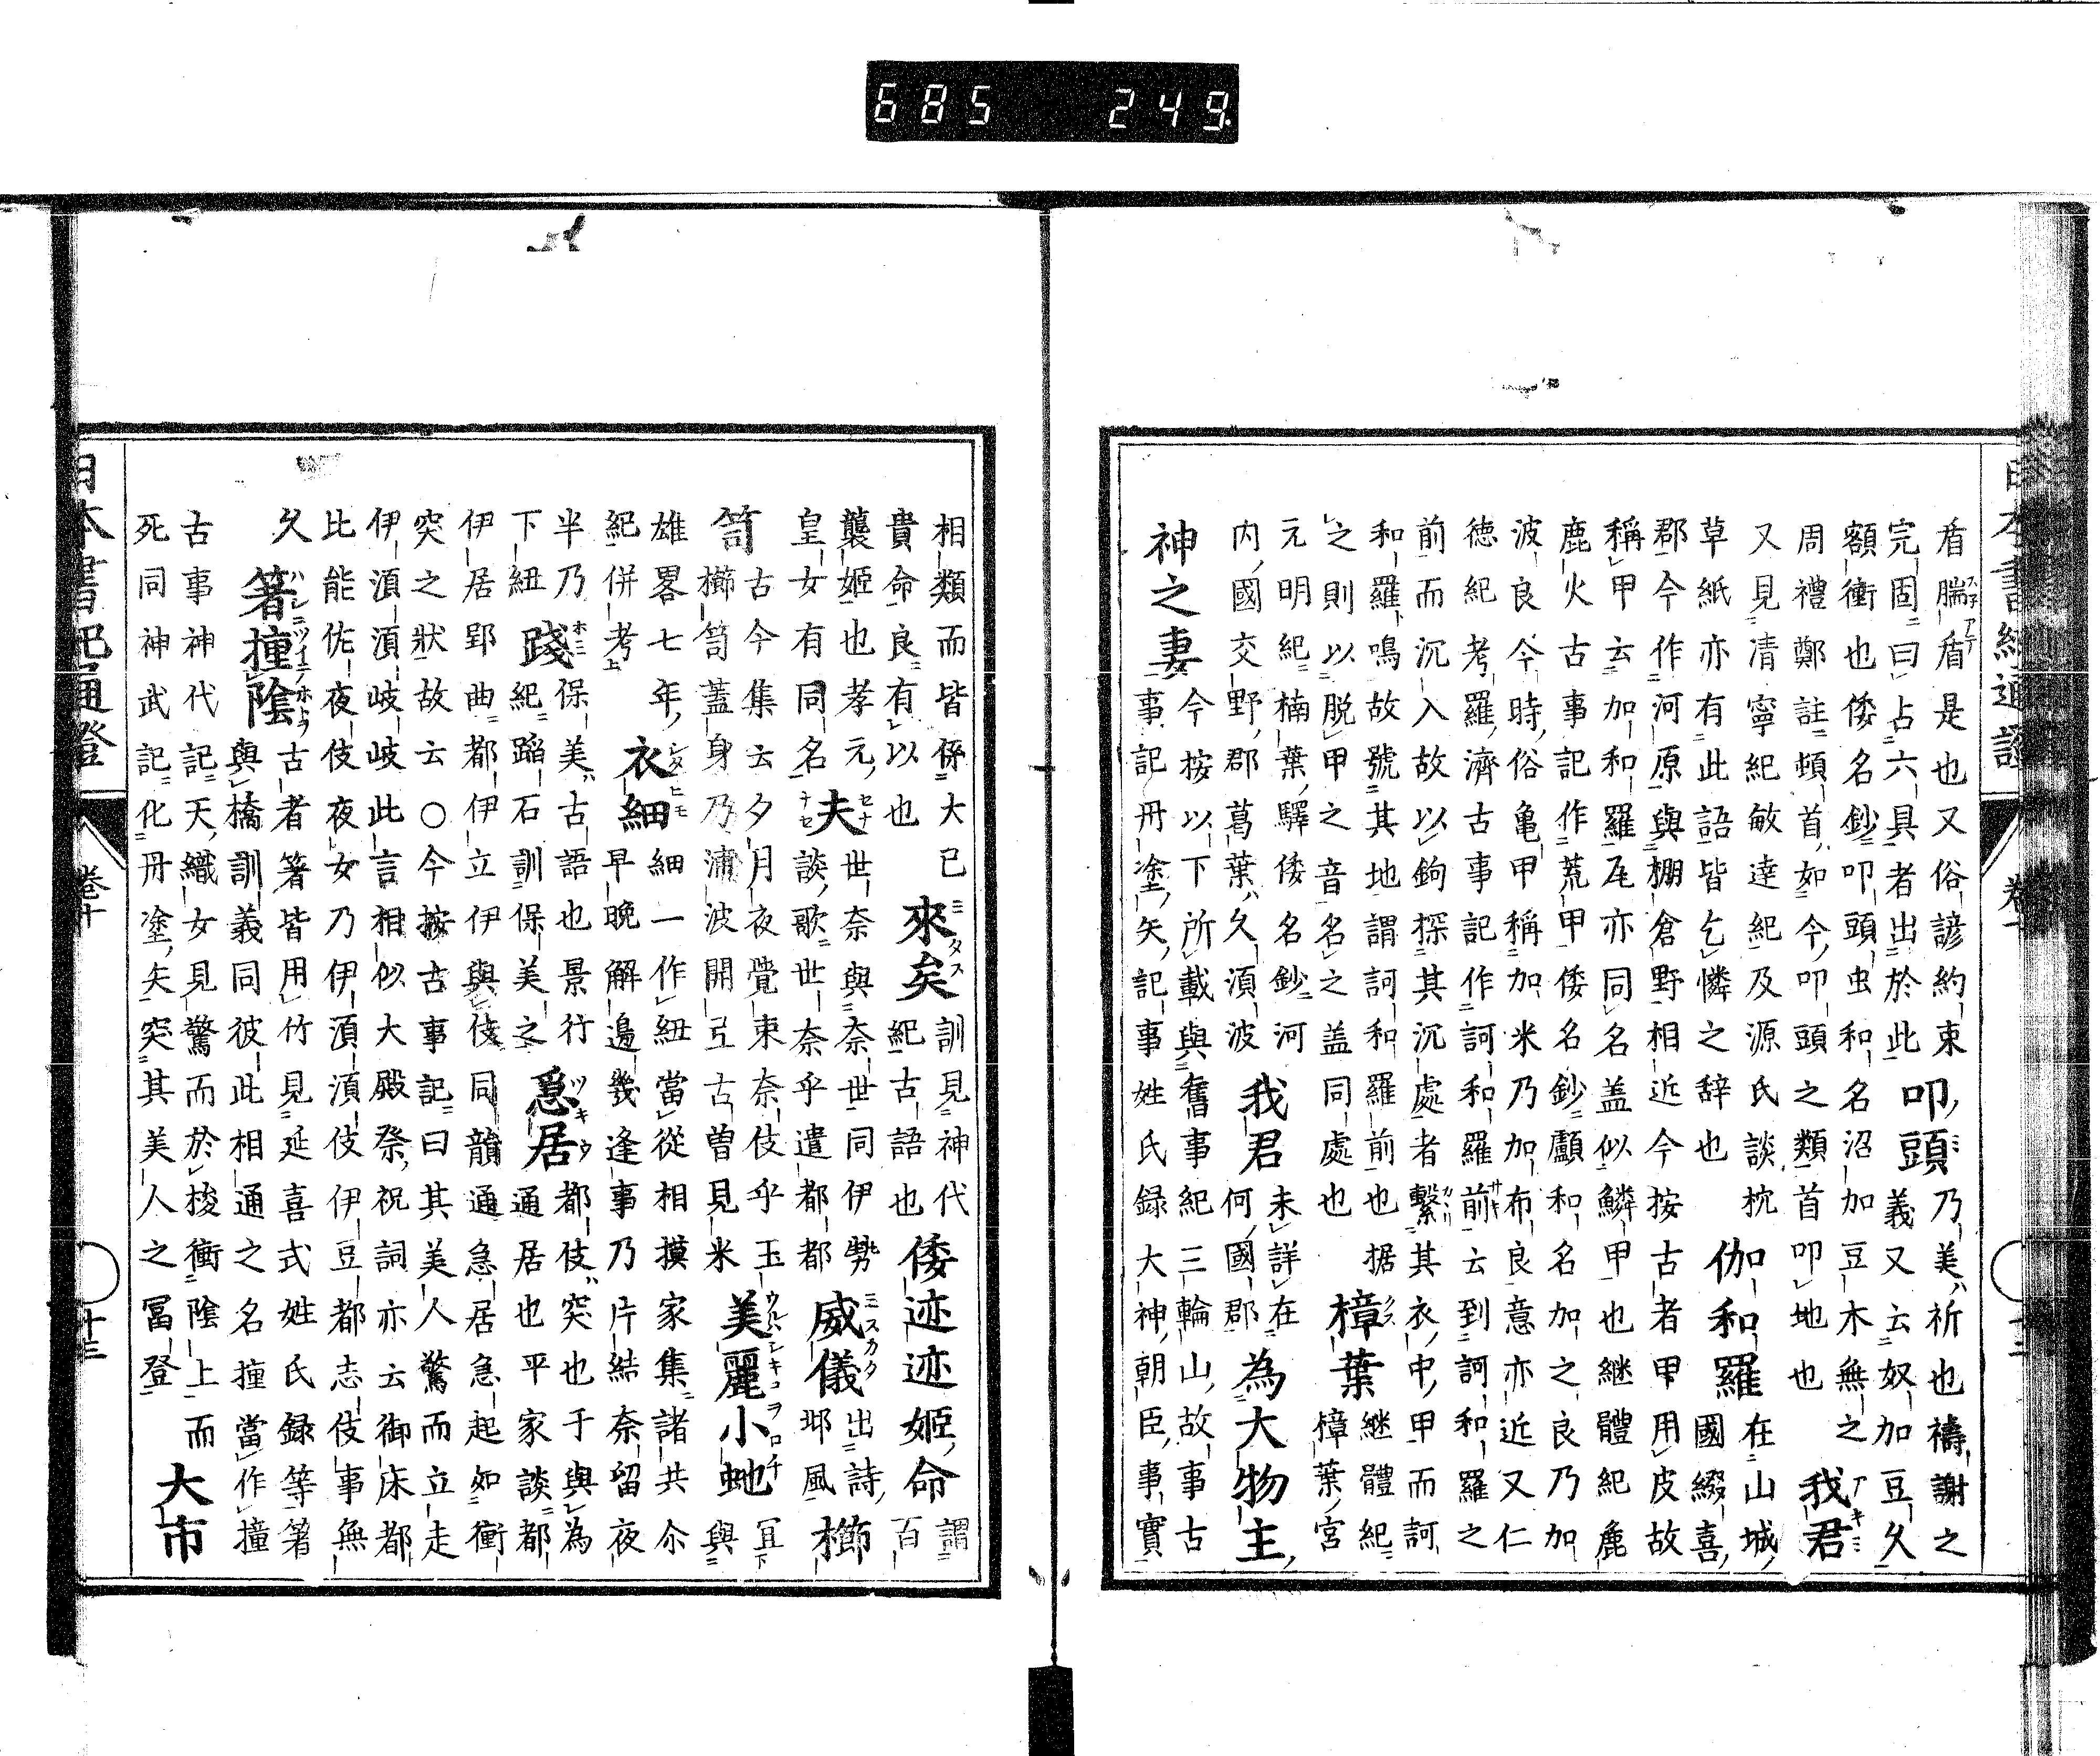 盾腨盾是也又俗諺約束
完固曰占六具者出於此
叩頭
乃美祈也禱謝之
義又云奴加豆久
額衝也倭名鈔叩頭虫和名沼加豆木無之
周禮鄭註頓首如今叩頭之類首叩地也
我君
又見清寧紀敏達紀及源氏談枕
草紙亦有此語皆乞憐之辞也
伽和羅
在山城
國綴喜
郡今作河原與棚倉野相近今按古者甲用皮故
稱甲云加和羅瓦亦同名盖似鱗甲也継體紀麁
鹿火古事記作荒甲倭名鈔顱和名加之良乃加
波良今時俗亀甲稱加米乃加布良意亦近又仁
徳紀考羅濟古事記作訶和羅前云到訶和羅之
前而沉入故以鉤探其沉處者繋其衣中甲而訶
和羅鳴故號其地謂訶和羅前也据
之則以脱甲之音名之盖同處也
樟葉
継體紀
樟葉宮
元明紀楠葉驛倭名鈔河
内國交野郡葛葉久湏波
我君
未詳在
何國郡
為大物主
神之妻
今按以下所載與舊事紀三輪山故事古
事記丹塗矢記事姓氏録大神朝臣事實
相類而皆係大已
貴命良有以也
來矣
訓見神代
紀古語也
倭迹迹姫命
謂
百
襲姫也孝元
皇女有同名
夫
世奈與奈世同伊勢
談歌世奈乎遣都都
威儀
出詩
邶風
櫛
笥
古今集云夕月夜覺束奈伎乎玉
櫛笥蓋身乃浦波開弖古曽見米
美麗小虵
冝
與
雄畧七年
紀併考
衣細
細一作紐當從相摸家集諸共尒
早晚解邉幾逢事乃片結奈留夜
半乃
下紐
踐
保美古語也景行
紀蹈石訓保美之
急居
都伎突也于與為
通居也平家談都
伊居郢曲都伊立伊與伎同韻通急居急起如衝
突之狀故云○今按古事記曰其美人驚而立走
伊湏湏岐岐此言相似大殿祭祝詞亦云御床都
比能佐夜伎夜女乃伊湏湏伎伊豆都志伎事無
久
箸撞陰
古者箸皆用竹見延喜式姓氏録等箸
與橋訓義同彼此相通之名撞當作撞
古事神代記天織女見驚而於梭衝陰上而
死同神武記化丹塗矢突其美人之冨登
大市
日本書紀通證
巻十
十三
685 249